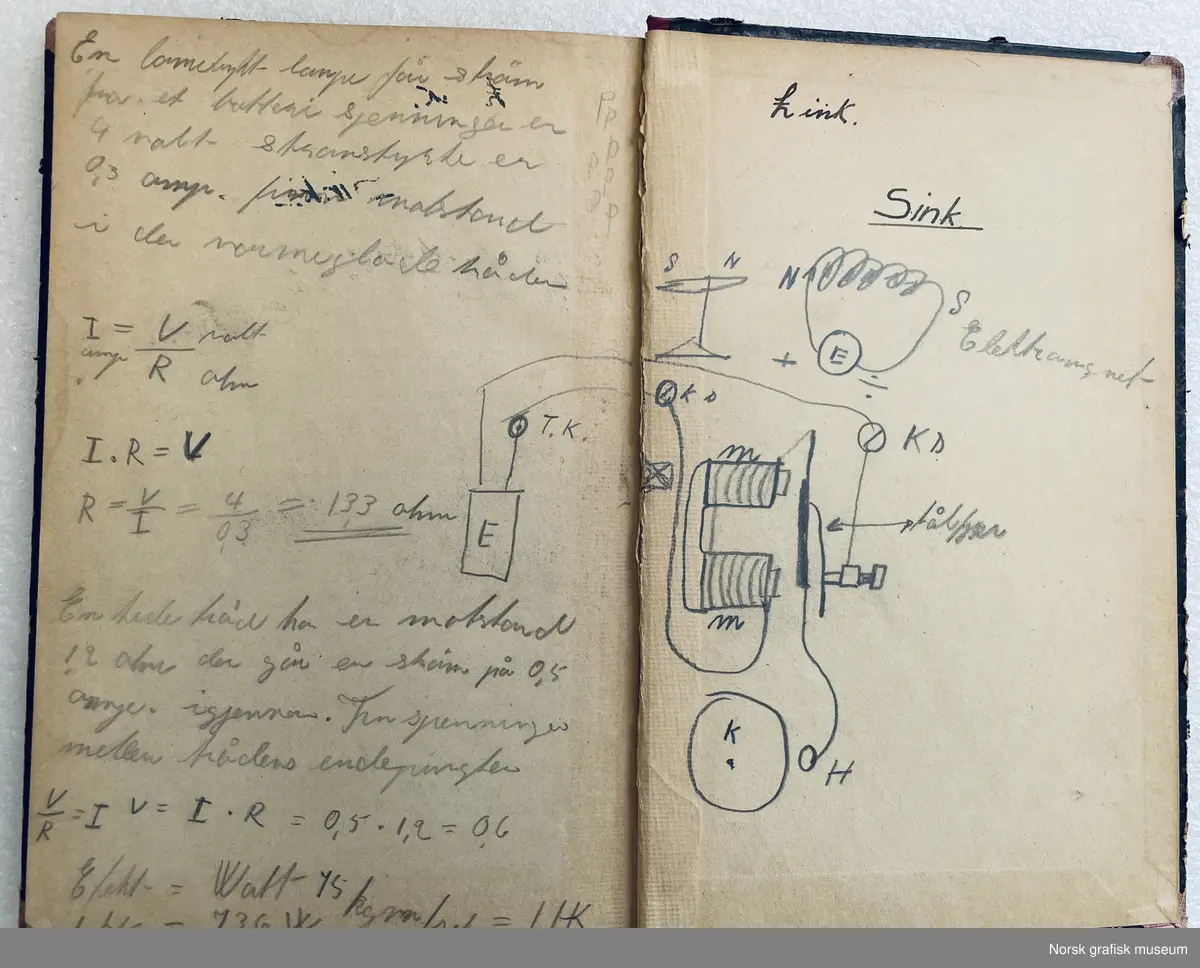 En lomelykt lampe får strøm
fra et batteri spenningen er
4 volt strømstyrke er
0,3 amp. motstand
i den varmeglødede tråden
I = V volt
amp R ohm
I . R = V
R = V/I = 4/0,3 = 13,3 ohm
T.K.
E
En hede tråd har en motstand
1,2 ohm der går en strøm på 0,5
amp. igjennem. Finn spenningen
mellem trådens endepungter
V/R = I V = I . R = 0,5 . 1,2 = 0,6
Efekt = Watt 75 kgrm/sek = 1 HK
736 W
Link.
Sink.
S N
N S
Elektrangnet
+ E ÷
K D
K D.
m
stålfjær
m
K
H
Norsk grafisk museum